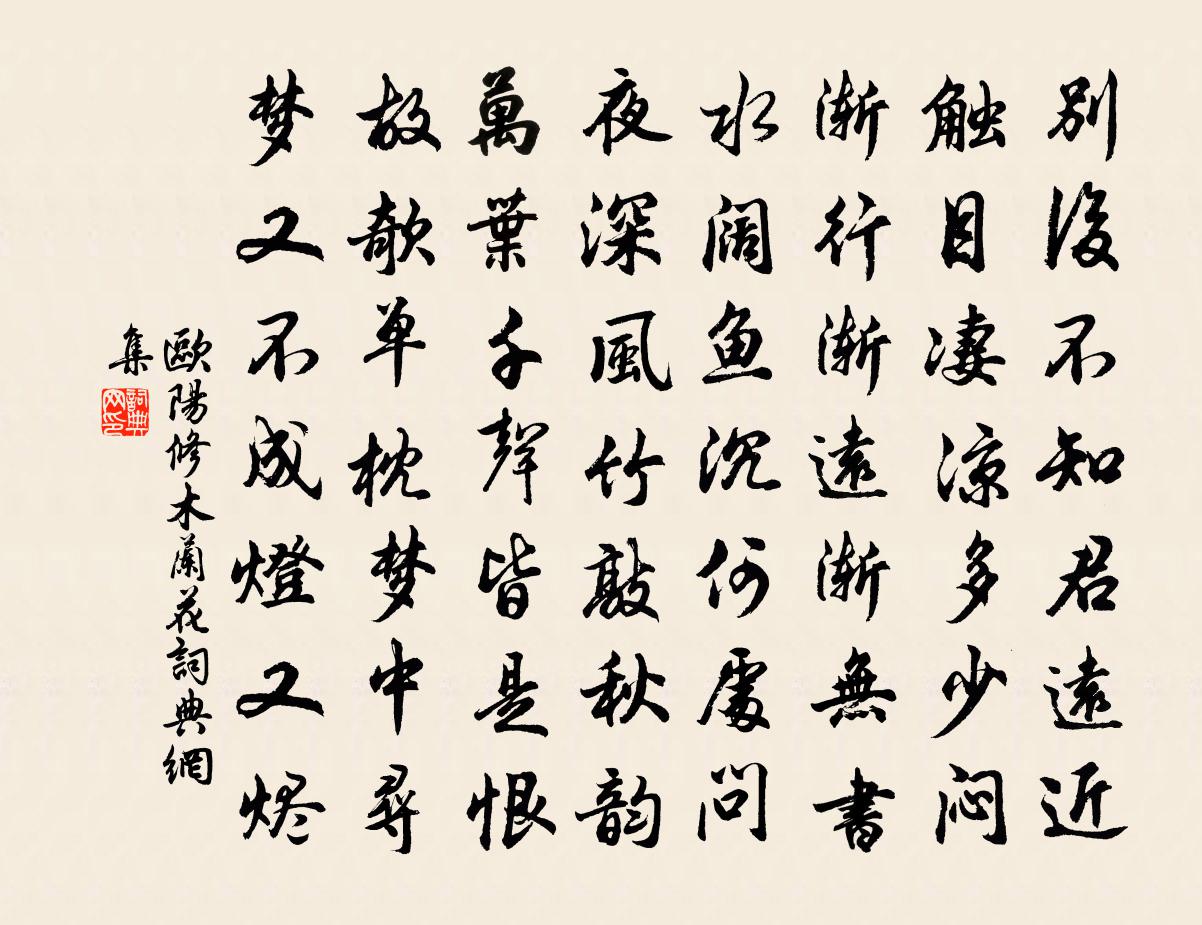 別後不知君遠近
触目凄涼多少闷
漸行漸遠漸無書
水阔鱼沉何處问
夜深風竹敲秋韵
萬葉千聲皆是恨
故欹单枕梦中尋
梦又不成燈又烬
歐陽修木蘭花詞典網
集
詞典
网印